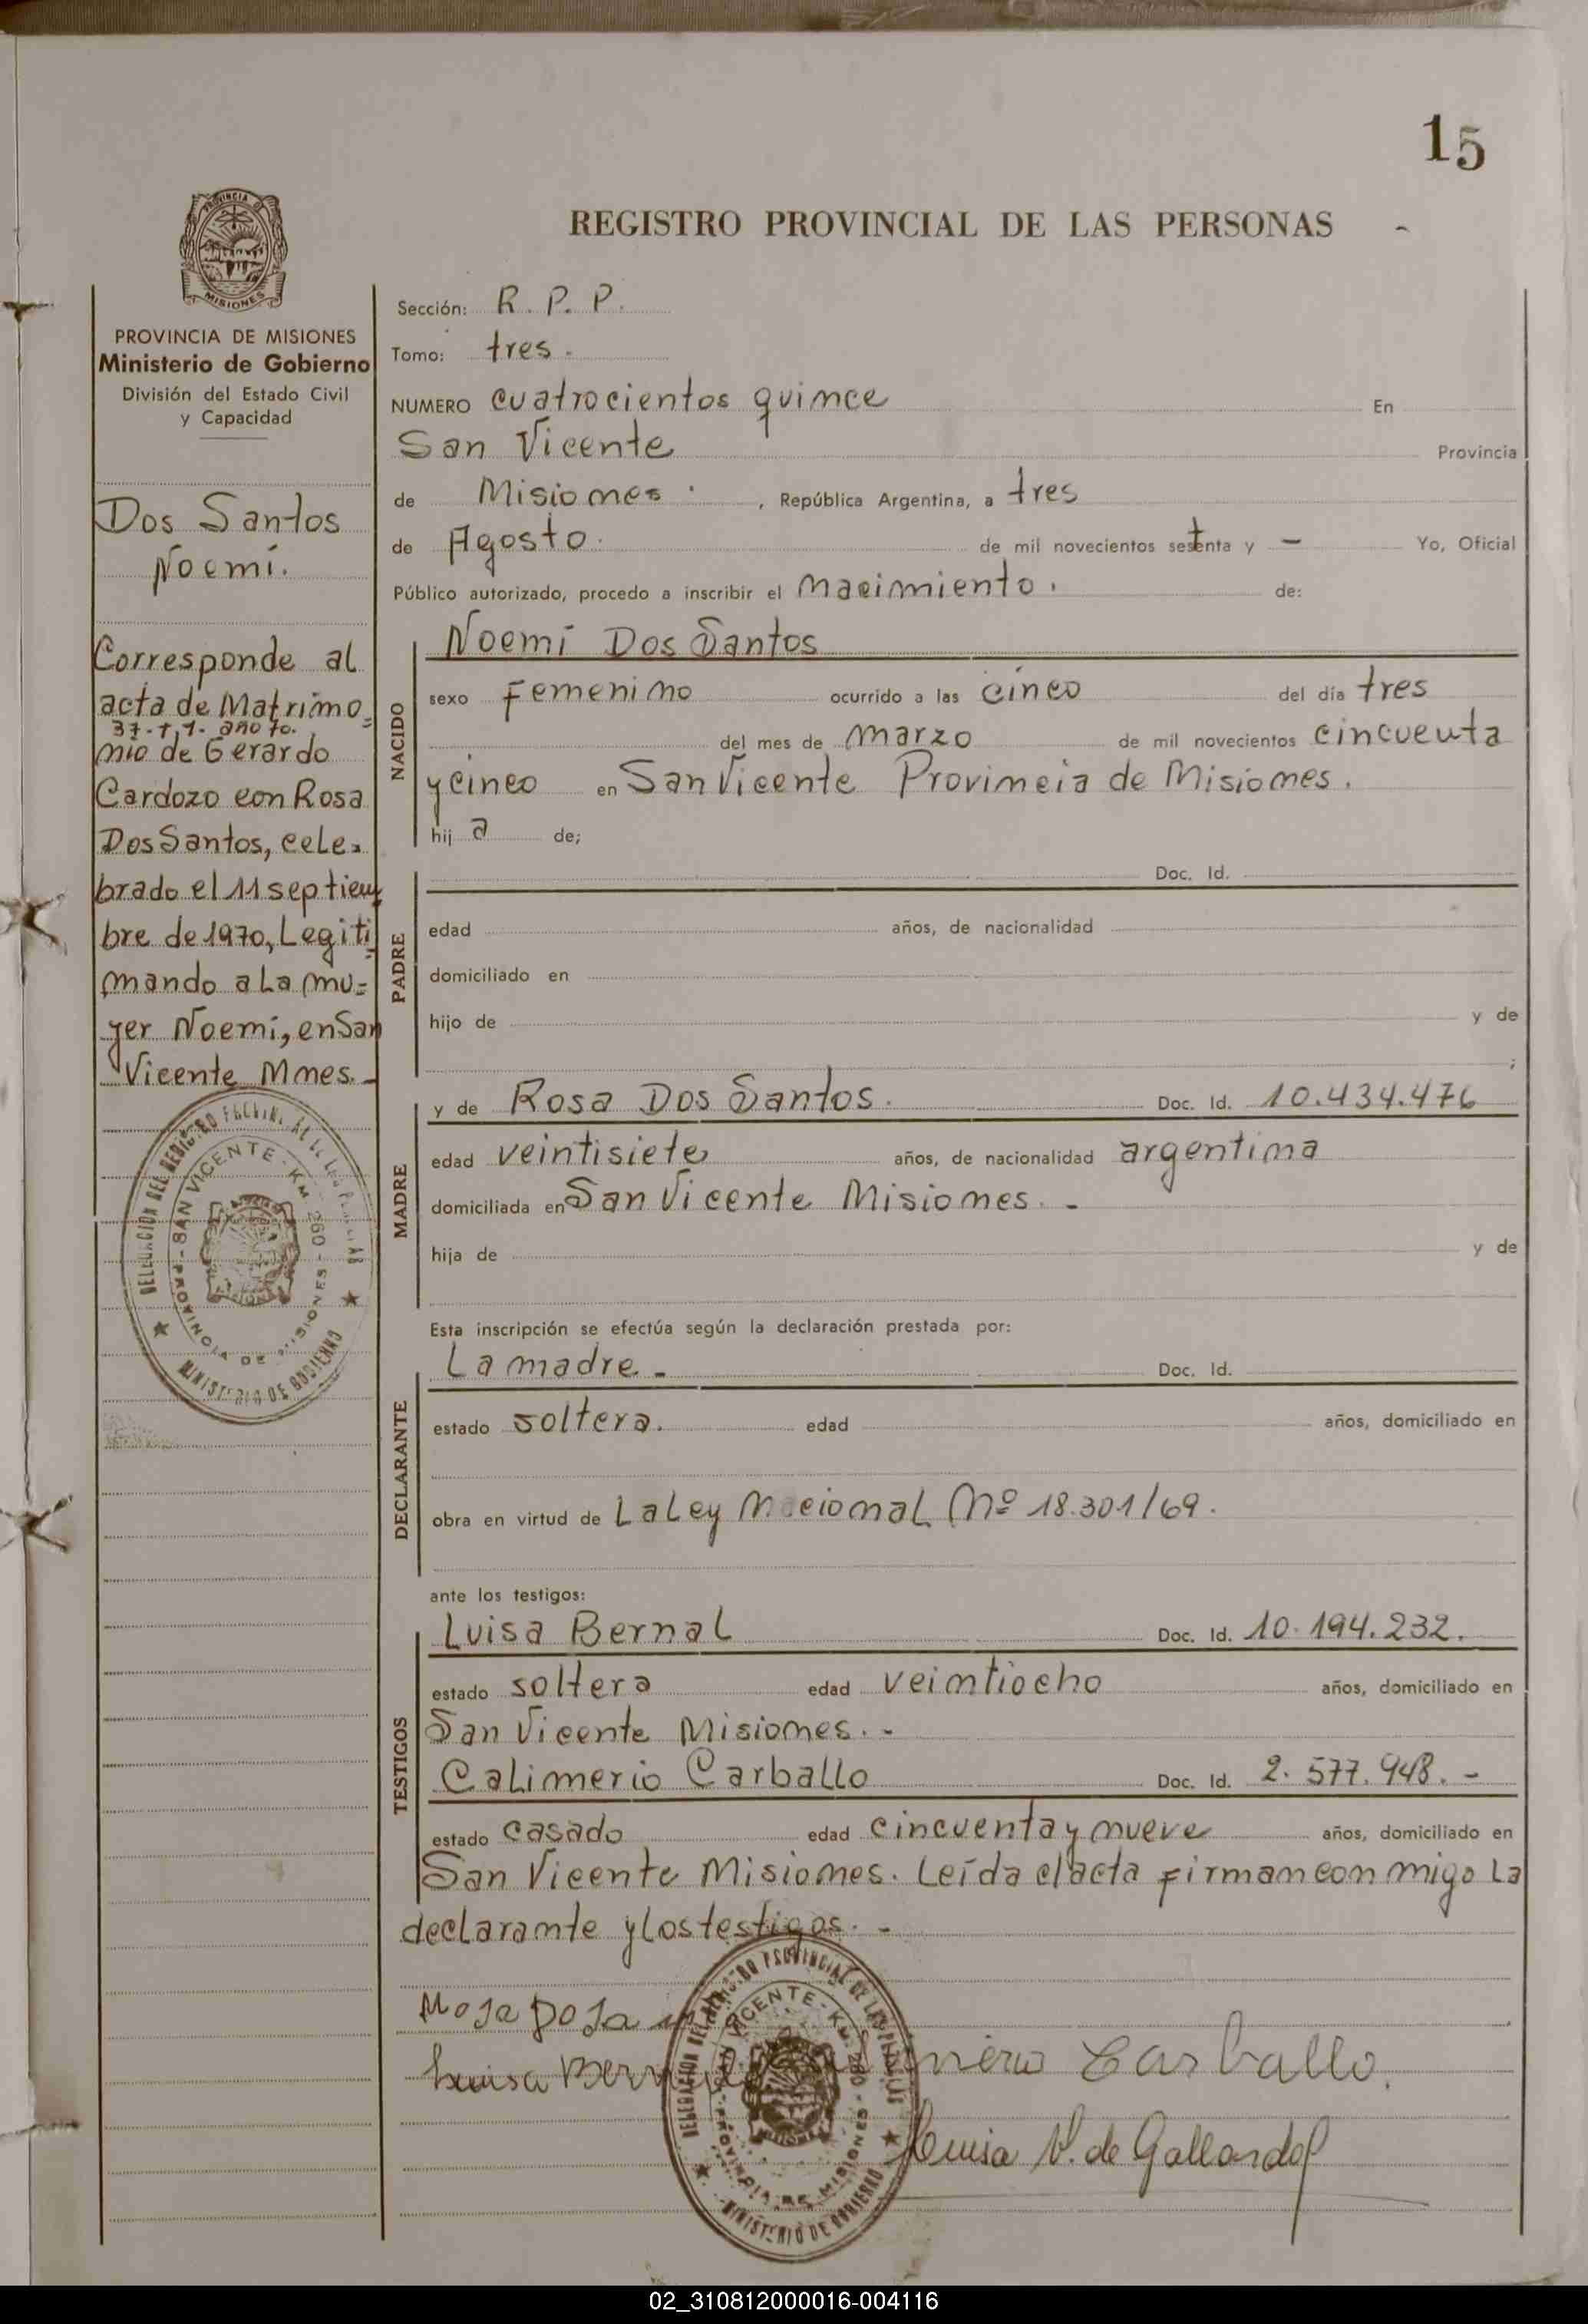 15
REGISTRO PROVINCIAL DE LAS PERSONAS -
PROVINCIA DE MISIONES
Ministerio de Gobierno
División del Estado Civil
y Capacidad
Dos Santos
Noemí.
Corresponde al
acta de Matrimo=
37-T,1- año 70.
nio de Gerardo
Cardozo con Rosa
Dos Santos, cele=
brado el 11 septiem
bre de 1970, Legiti
mando a La mu=
jer Noemí, en San
Vicente Mnes.-
DELEGACION DEL REGISTRO PROVINCIAL DE LAS PERSONAS
SAN VICENTE - KM. 260 - PROVINCIA DE MISIONES
MINISTERIO DE GOBIERNO
Sección: R. P. P.
Tomo: tres.
NUMERO cuatrocientos quince En
San Vicente Provincia
de Misiones. , República Argentina, a tres
de Agosto. de mil novecientos setenta y - Yo, Oficial
Público autorizado, procedo a inscribir el nacimiento. de:
NACIDO
Noemí Dos Santos
sexo Femenino ocurrido a las cinco del día tres
del mes de marzo de mil novecientos cincuenta
y cinco en San Vicente Provincia de Misiones.
hij a de;
PADRE
Doc. Id.
edad años, de nacionalidad
domiciliado en
hijo de y de
;
MADRE
y de Rosa Dos Santos. Doc. Id. 10.434.476
edad veintisiete años, de nacionalidad argentina
domiciliada en San Vicente Misiones. -
hija de y de
Esta inscripción se efectúa según la declaración prestada por:
DECLARANTE
La madre - Doc. Id.
estado soltera. edad años, domiciliado en
obra en virtud de La Ley Nacional Nº 18.301/69.
ante los testigos:
TESTIGOS
Luisa Bernal Doc. Id. 10.194.232.
estado soltera edad veintiocho años, domiciliado en
San Vicente Misiones. -
Calimerio Carballo Doc. Id. 2.577.948. -
estado casado edad cincuenta y nueve años, domiciliado en
San Vicente Misiones. Leída el acta firman con migo La
declarante y los testigos. -
Luisa Carballo.
Luisa V. de Gallardo
DELEGACION DEL REGISTRO PROVINCIAL DE LAS PERSONAS
SAN VICENTE - KM. 260 - PROVINCIA DE MISIONES
MINISTERIO DE GOBIERNO
02_310812000016-004116